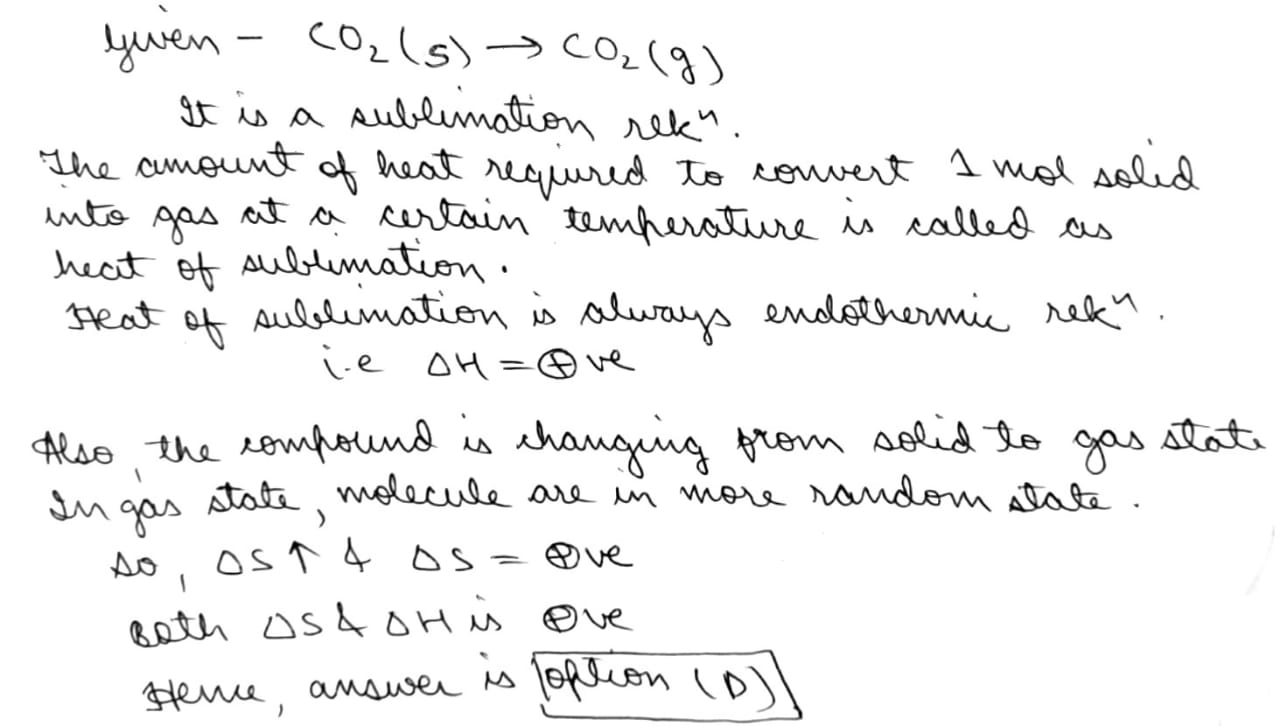 Given - CO₂(s) → CO₂(g)
It is a sublimation rekⁿ.
The amount of heat required to convert 1 mol solid
into gas at a certain temperature is called as
heat of sublimation.
Heat of sublimation is always endothermic rekⁿ.
i.e ΔH = ⊕ve
Also, the compound is changing from solid to gas state
In gas state, molecule are in more random state.
so, ΔS ↑ & ΔS = ⊕ve
Both ΔS & ΔH is ⊕ve
Hence, answer is option (D)